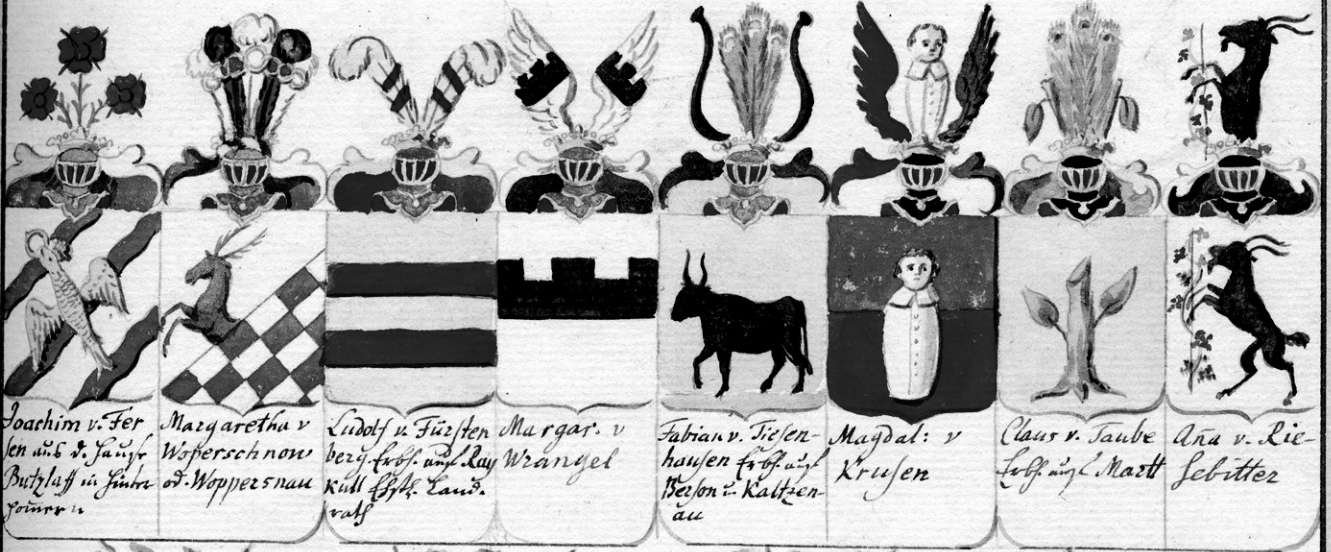 Joachim v. Fer
sen aus d. Hause
Butzlaff in Hinter
Pomern
Margaretha v
Woperschnow
od. Woppersnau
Ludolf v. Fürsten
berg. Erbh. auf Ray
Kull Ehstl. Land.
rath
Margar. v
Wrangel
Fabian v. Tiesen-
hausen Erbh. auf
Berson u. Kaltzen-
au
Magdal: v
Krusen
Claus v. Taube
Erbh. auf Martt
Aña v. Rie-
sebitter